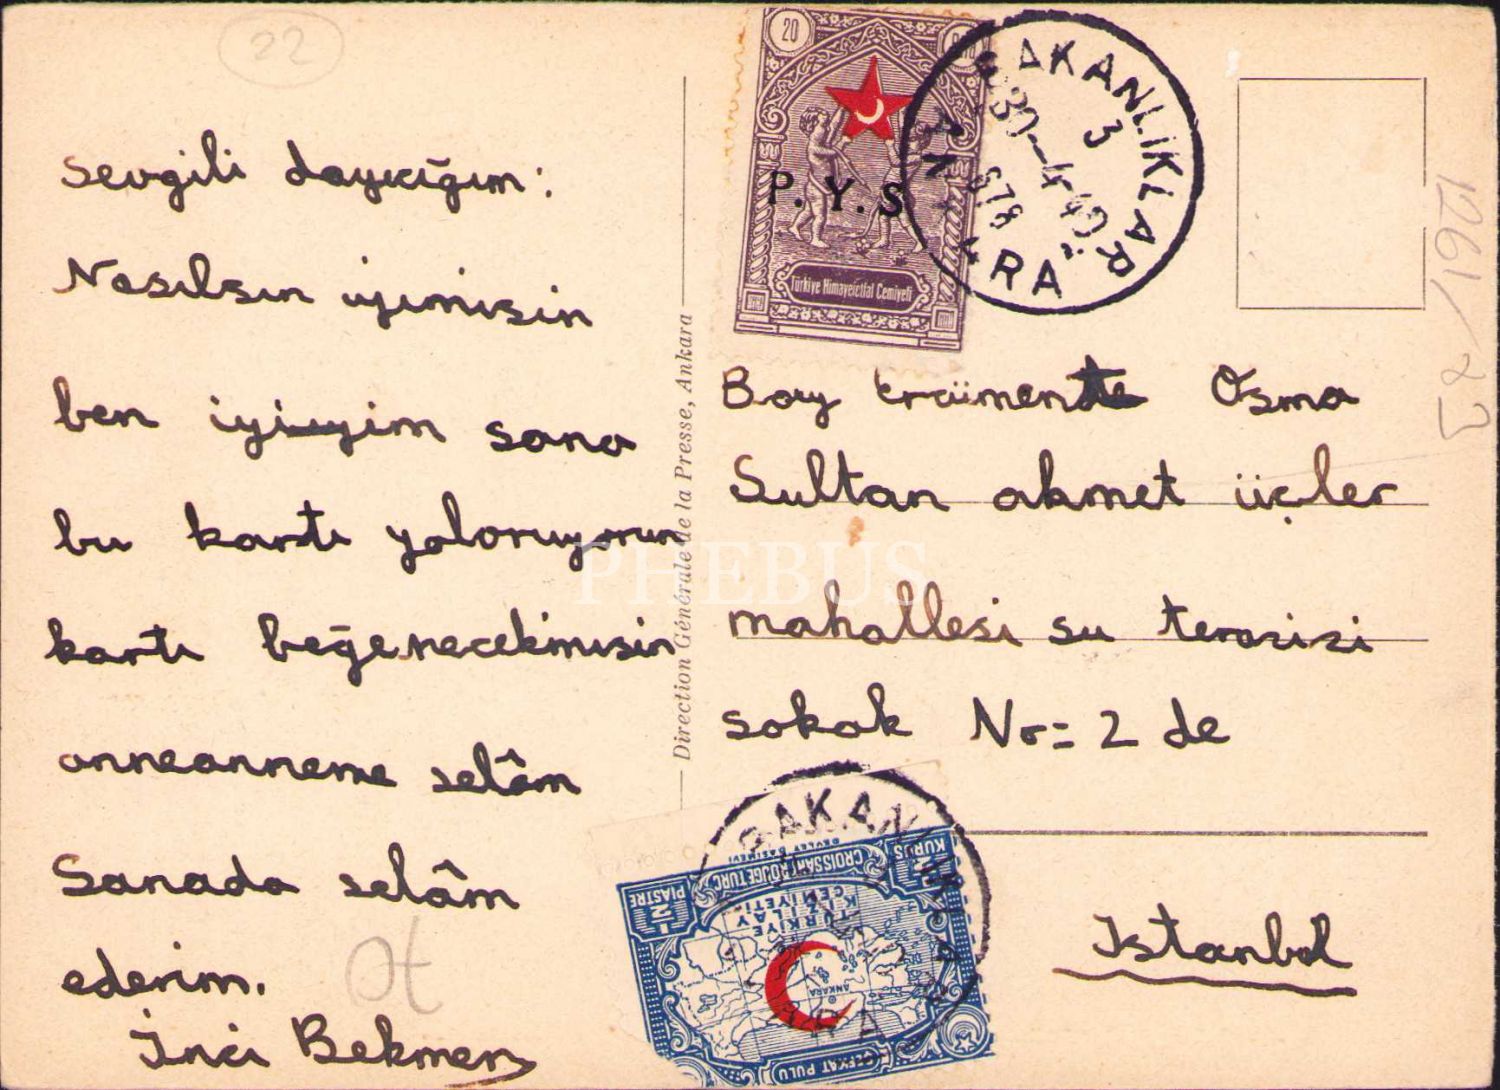 22
Sevgili dayıcığım:
Nasılsın iyimisin
ben iyiyim sana
bu kartı yoloruyorum
kartı beğenecekmisin
anneanneme selâm
Sanada selâm
ederim.
İnci Bekmen
Direction Générale de la Presse, Ankara
20
P. Y. S
Türkiye Himayeietfal Cemiyeti
BAKANLIKLAR
3
30-4-40
678
ANKARA
1261/
Bay Osma
Sultan ahmet üçler
mahallesi su terazisi
sokak Nr= 2 de
Istanbul
BAKANLIKLAR
KURUŞ 1/2
CROISSANT ROUGE TURC
1/2 PIASTRE
DEVLET BASIMEVİ
TÜRKİYE
KIZILAY
CEMİYETİ
ANKARA
ŞEFKAT PULU
PHEBUS